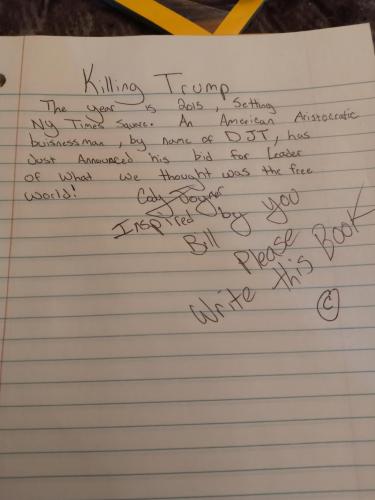 Killing Trump
The year is 2015, Setting
NY Times Square. An American Aristocratic
buisnessman, by name of DJT, has
Just Announced his bid for Leader
of What we thought was the free
World!
Cody Joyner
Inspired by you
Bill Please
Write this Book
©